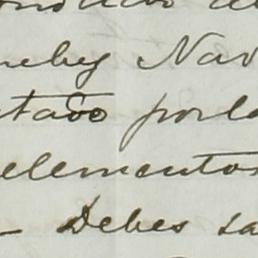 neby Nav
tado porla
elementos
– Debes sa